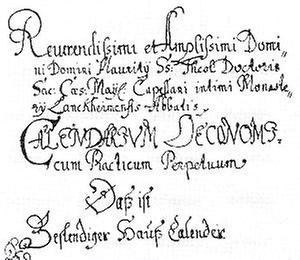 Reverendissimi et Amplissimi Domi=
ni Domini Mauritÿ Ss: Theol: Doctoris
Sac: Cæs: Maÿ: Capellari intimi Monaste=
rÿ Lanckheimensis Abbatis
CALENDARIUM OECONOMI=
cum Practicum Perpetuum
Daß ist
Bestendiger Hauß Calender